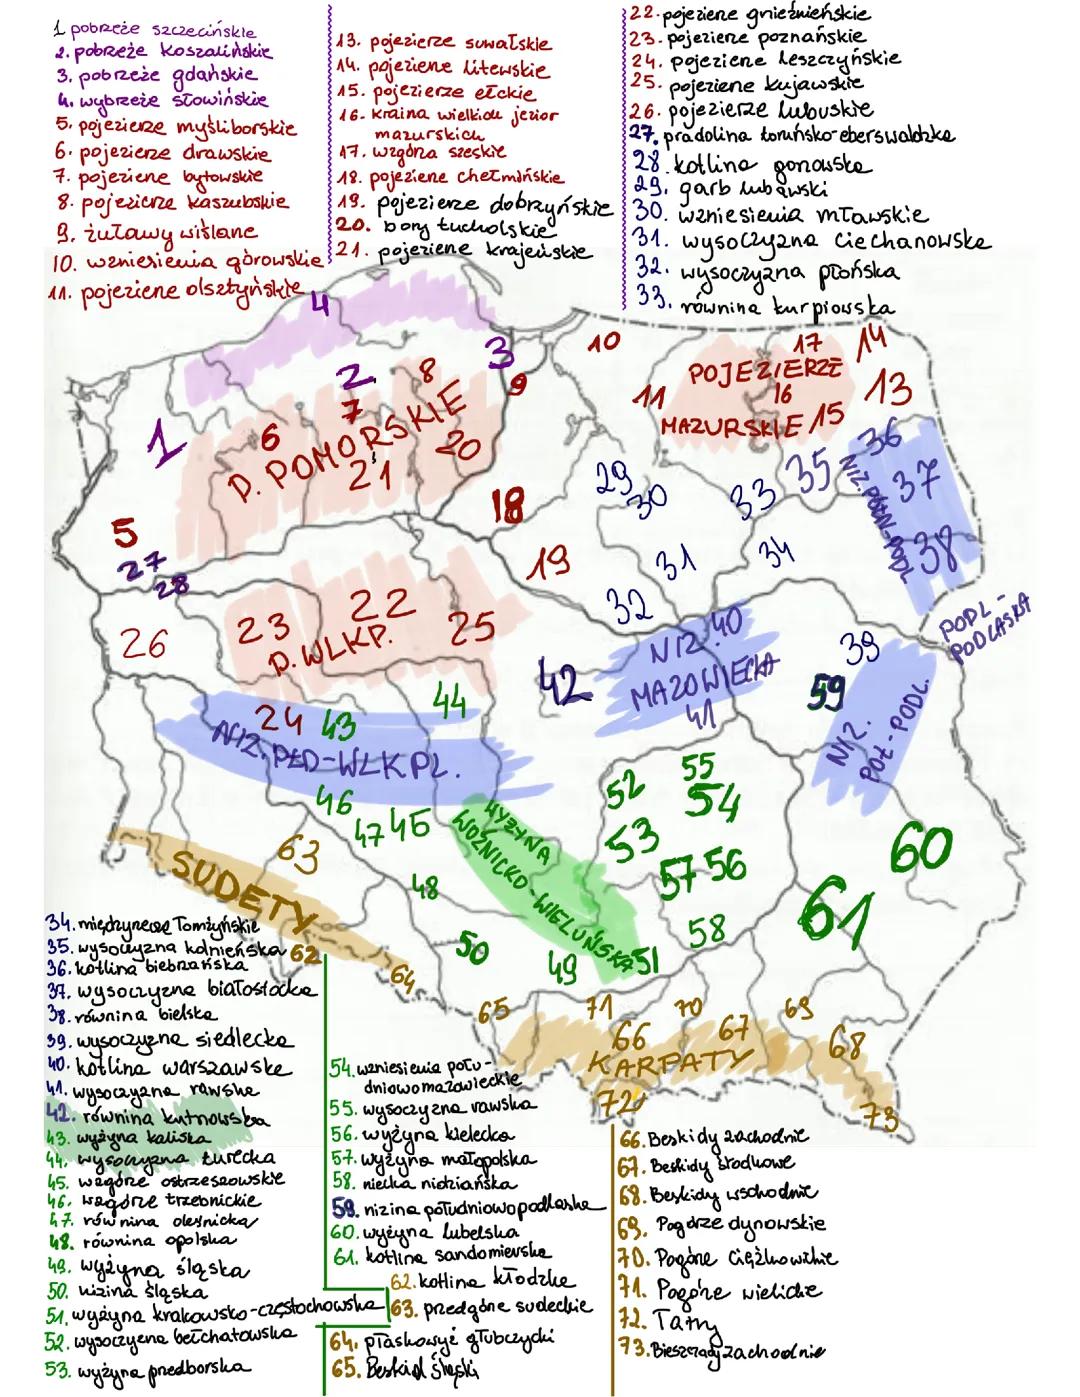 1 pobrzeże szczecińskie
2. pobrzeże koszalińskie
3. pobrzeże gdańskie
4. wybrzeże słowińskie
5. pojezierze myśliborskie
6. pojezierze drawskie
7. pojezierze bytowskie
8. pojezierze kaszubskie
9. żuławy wiślane
10. wzniesienia górowskie
11. pojezierze olsztyńskie
13. pojezierze suwalskie
14. pojezierze litewskie
15. pojezierze ełckie
16. kraina wielkich jezior
mazurskich
17. wzgórza szeskie
18. pojezierze chełmińskie
19. pojezierze dobrzyńskie
20. bory tucholskie
21. pojezierze krajeńskie
22. pojezierze gnieźnieńskie
23. pojezierze poznańskie
24. pojezierze leszczyńskie
25. pojezierze kujawskie
26. pojezierze lubuskie
27. pradolina toruńsko-eberswaldzka
28. kotlina gorzowska
29. garb lubawski
30. wzniesienia mławskie
31. wysoczyzna ciechanowska
32. wysoczyzna płońska
33. równina kurpiowska
4
10
17
14
2
8
3
9
POJEZIERZE
11
16
13
MAZURSKIE 15
1
6
7
D. POMORSKIE
21
20
36
37
NIZ. PÓŁN-PODL
38
29
30
33
35
5
18
27
28
19
31
34
32
26
23
22
25
D. WLKP.
PODL -
PODLASKA
NIZ. 40
MAZOWIECKA
41
39
42
59
NIZ.
POŁ-PODL.
44
24
43
NIZ. PŁD-WLKPL.
46
47
45
WYŻYNA
WOŹNICKO-WIELUŃSKA
52
55
54
53
57
56
60
61
63
SUDETY
48
50
49
51
58
62
64
65
71
70
69
66
67
68
KARPATY
72
73
34. międzyrzecze łomżyńskie
35. wysoczyzna kolneńska
36. kotlina biebrzańska
37. wysoczyzna białostocka
38. równina bielska
39. wysoczyzna siedlecka
40. kotlina warszawska
41. wysoczyzna rawska
42. równina kutnowska
43. wyżyna kaliska
44. wysoczyzna turecka
45. wzgórze ostrzeszowskie
46. wzgórze trzebnickie
47. równina oleśnicka
48. równina opolska
49. wyżyna śląska
50. nizina śląska
51. wyżyna krakowsko-częstochowska
52. wysoczyzna bełchatowska
53. wyżyna przedborska
54. wzniesienia połu-
dniowomazowieckie
55. wysoczyzna rawska
56. wyżyna kielecka
57. wyżyna małopolska
58. niecka nidziańska
59. nizina południowopodlaska
60. wyżyna lubelska
61. kotlina sandomierska
62. kotlina kłodzka
63. przedgórze sudeckie
64. płaskowyż głubczycki
65. Beskid Śląski
66. Beskidy zachodnie
67. Beskidy środkowe
68. Beskidy wschodnie
69. Pogórze dynowskie
70. Pogórze Ciężkowickie
71. Pogórze wielickie
72. Tatry
73. Bieszczady zachodnie